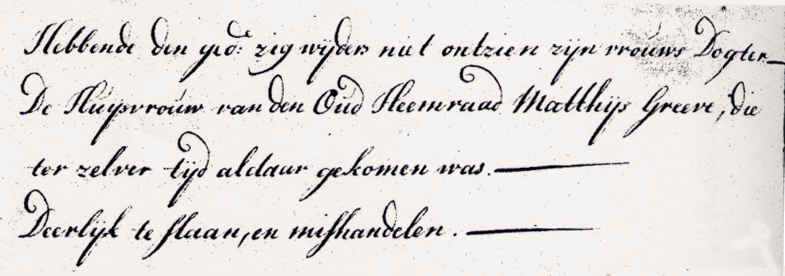 Hebbende den ged: zig wijders niet ontzien zijn vrouws Dogter_
De Huysvrouw van den Oud Heemraad Matthijs Greeve, die
ter zelver tijd aldaar gekomen was.
Deerlijk te slaan, en mishandelen.